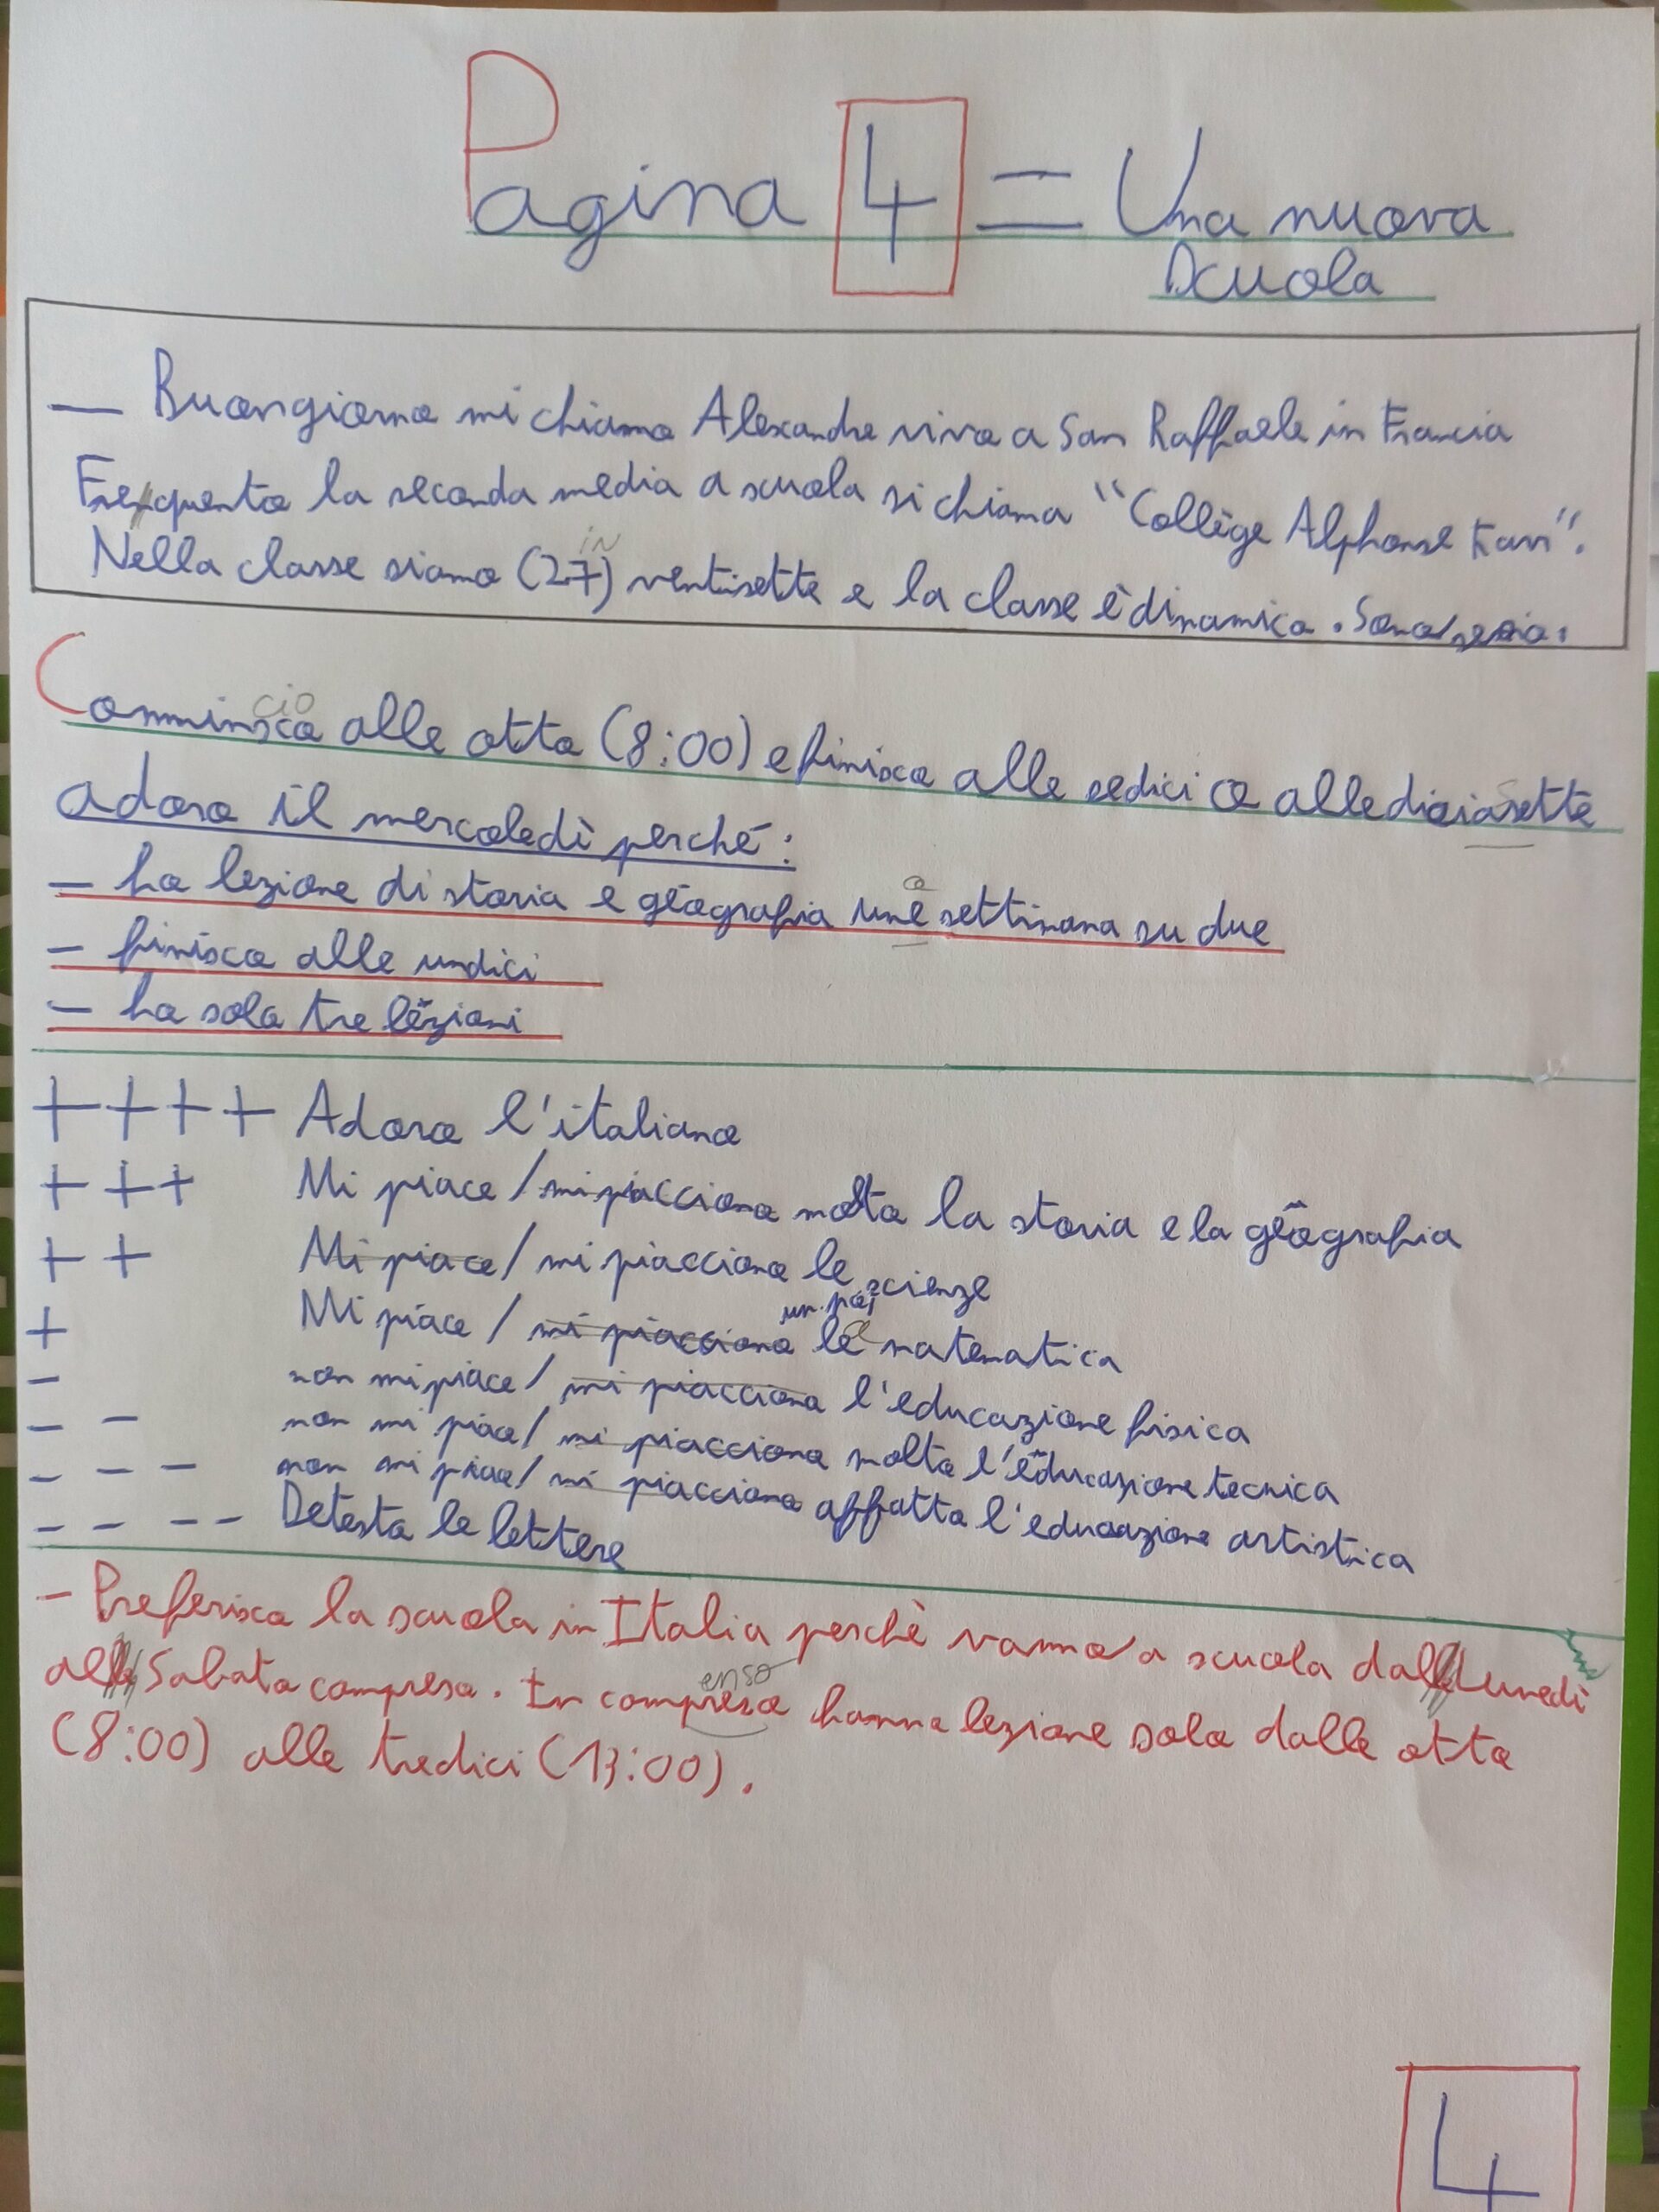 Pagina 4 = Una nuova
Scuola
— Buongiorno mi chiamo Alexandre vivo a San Raffaele in Francia
Frequento la seconda media a scuola si chiama "Collège Alphonse Karr".
in
Nella classe siamo (27) ventisette e la classe è dinamica. Sono serio.
cio
Comminsco alle otto (8:00) e finisco alle sedici o alle diciasette
adoro il mercoledì perché:
- ho lezione di storia e géografia une settimana su due
a
- finisco alle undici
- ho solo tre lézioni
++++ Adoro l'italiano
+++ Mi piace / mi piacciono molto la storia e la géografia
++ Mi piace / mi piacciono le scienze
un po'
+ Mi piace / mi piacciono le matematica
a
- non mi piace / mi piacciono l'educazione fisica
-- non mi piace / mi piacciono molto l'éducazione tecnica
--- non mi piace / mi piacciono affatto l'educazione artistica
---- Detesto le lettere
- Preferisco la scuola in Italia perchè vanno a scuola dal Lunedì
al Sabato compreso. In compreso hanno lezione solo dalle otto
enso
(8:00) alle tredici (13:00).
4